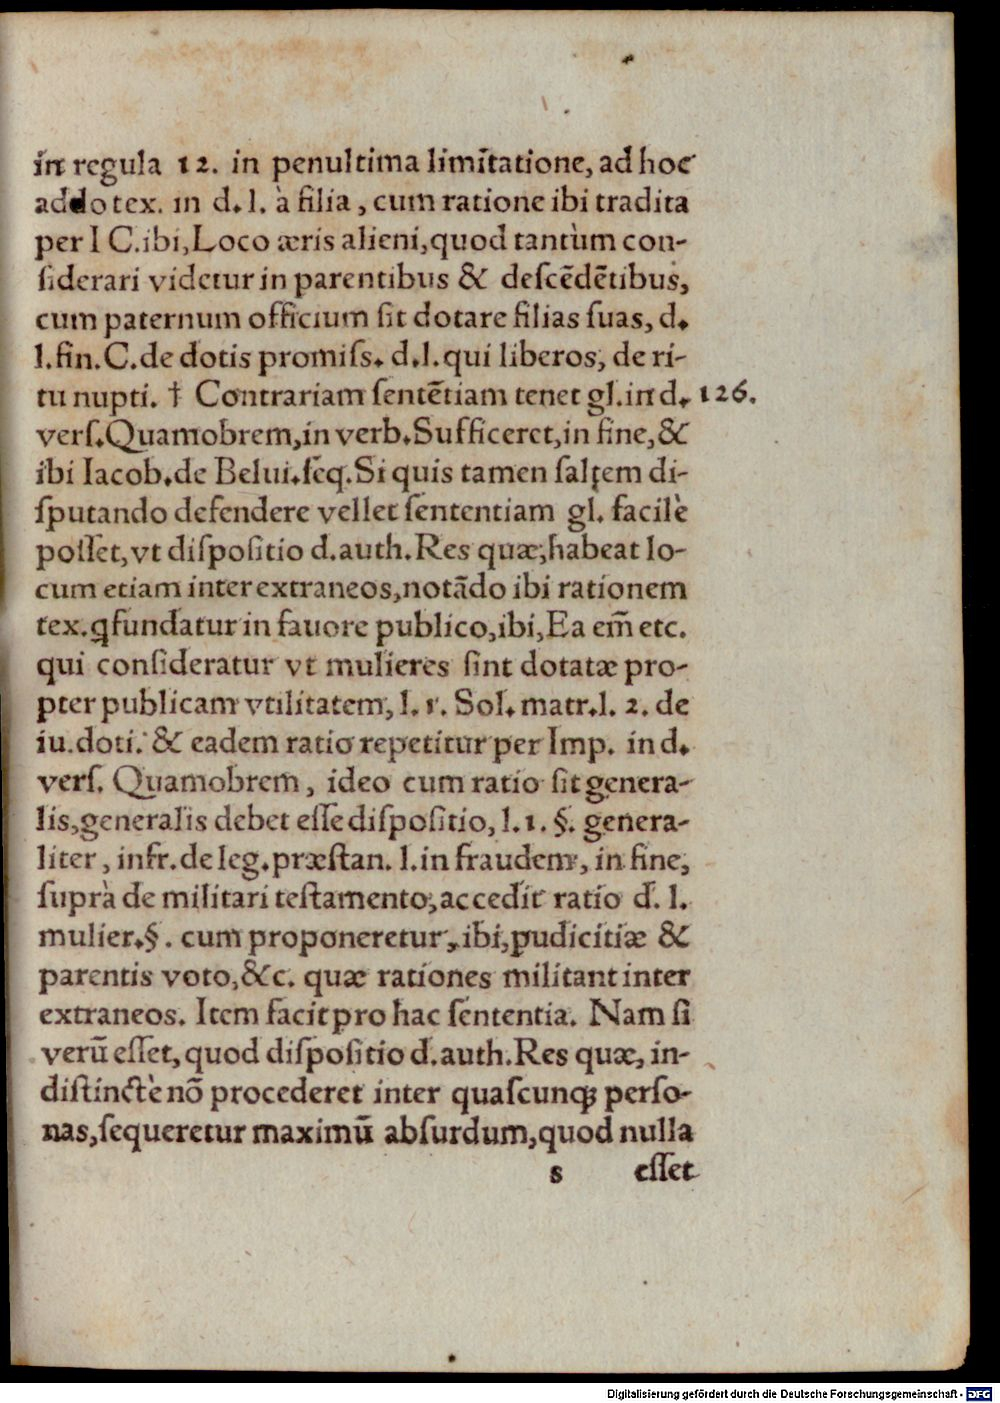 in regula 12. in penultima limitatione, ad hoc
addo tex. in d. l. à filia, cum ratione ibi tradita
per I C. ibi, Loco æris alieni, quod tantùm con-
ſiderari videtur in parentibus & deſcẽdẽtibus,
cum paternum officium ſit dotare filias ſuas, d.
l. fin. C. de dotis promiſs. d. l. qui liberos, de ri-
tu nupti. † Contrariam ſentẽtiam tenet gl. in d. 126.
verſ. Quamobrem, in verb. Sufficeret, in fine, &
ibi Iacob. de Belui. ſeq. Si quis tamen ſaltem di-
ſputando defendere vellet ſententiam gl. facilè
poſſet, vt diſpoſitio d. auth. Res quæ, habeat lo-
cum etiam inter extraneos, notãdo ibi rationem
tex. ꝗ fundatur in fauore publico, ibi, Ea em̃ etc.
qui conſideratur vt mulieres ſint dotatæ pro-
pter publicam vtilitatem, l. 1. Sol. matr. l. 2. de
iu. doti. & eadem ratio repetitur per Imp. in d.
verſ. Quamobrem, ideo cum ratio ſit genera-
lis, generalis debet eſſe diſpoſitio, l. 1. §. genera-
liter, infr. de leg. præſtan. l. in fraudem, in fine,
ſuprà de militari teſtamento, accedit ratio d. l.
mulier. §. cum proponeretur, ibi, pudicitiæ &
parentis voto, &c. quæ rationes militant inter
extraneos. Item facit pro hac ſententia. Nam ſi
verũ eſſet, quod diſpoſitio d. auth. Res quæ, in-
diſtinctè nõ procederet inter quaſcunq; perſo-
nas, ſequeretur maximũ abſurdum, quod nulla
s eſſet
Digitalisierung gefördert durch die Deutsche Forschungsgemeinschaft - DFG